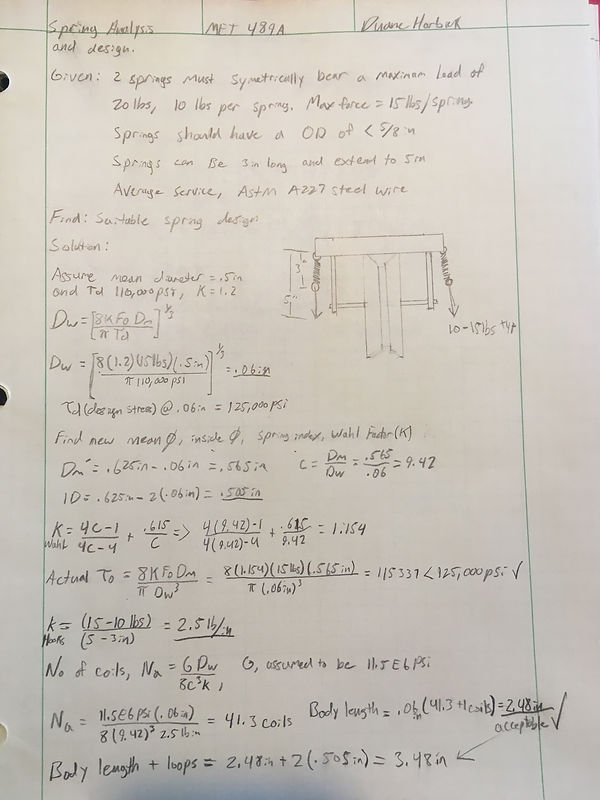 Spring Analysis and design.
MET 489A
Duane Harbick
Given: 2 springs must symetrically bear a maximum load of
20 lbs, 10 lbs per spring. Max force = 15 lbs/spring
Springs should have a OD of < 5/8 in
Springs can Be 3in long and extend to 5in
Average service, Astm A227 steel wire
Find: Suitable spring design.
Solution:
3"
5"
10-15lbs
Assume mean diameter = .5in
and Td 110,000 psi, K=1.2
Dw = [8KFo Dm / π Td]^1/3
Dw = [8(1.2)(15lbs)(.5in) / π 110,000 psi]^1/3 = .06in
Td (design stress) @ .06in = 125,000 psi
Find new mean Ø, inside Ø, spring index, Wahl Factor (K)
Dm = .625in - .06in = .565in   C = Dm/Dw = .565/.06 = 9.42
ID = .625in - 2(.06in) = .505in
K Wahl = 4C-1/4C-4 + .615/C => 4(9.42)-1/4(9.42)-4 + .615/9.42 = 1.154
Actual To = 8KFoDm / π Dw^3 = 8(1.154)(15lbs)(.565in) / π (.06in)^3 = 115337 < 125,000 psi ✓
k Hooks = (15-10 lbs)/(5-3in) = 2.5 lb/in
No of coils, Na = GDw / 8C^3k,   G, assumed to be 11.5E6 Psi
Na = 11.5E6 psi (.06in) / 8(9.42)^3 2.5 lb in = 41.3 coils
Body length = .06in (41.3 + 1 coils) = 2.48in
acceptable ✓
Body length + loops = 2.48in + 2(.505in) = 3.48in